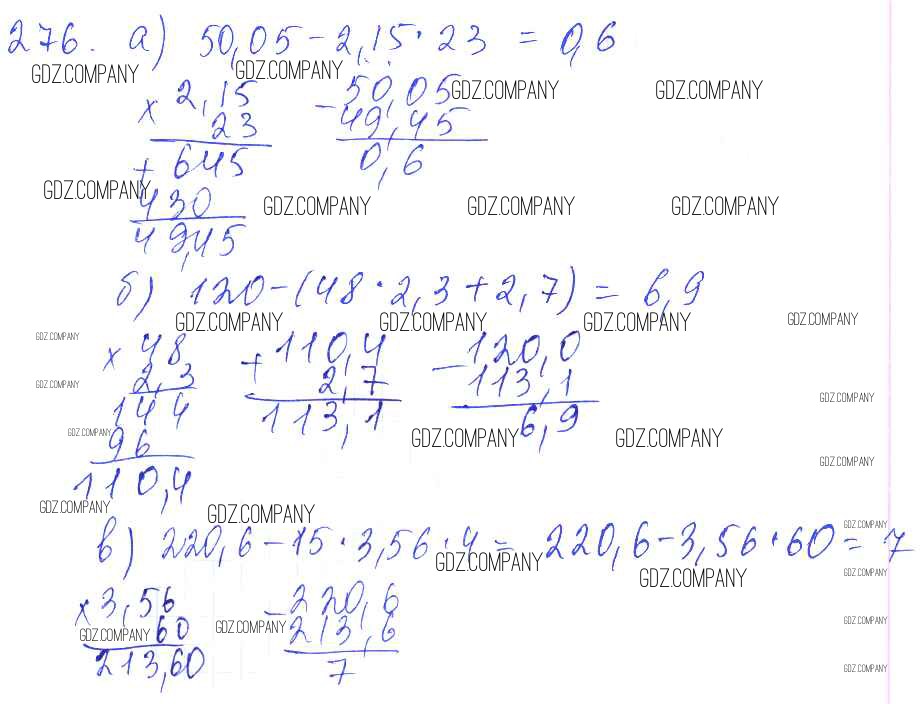 276. а) 50,05 - 2,15 · 23 = 0,6
GDZ.COMPANY GDZ.COMPANY GDZ.COMPANY GDZ.COMPANY
× 2,15 - 50,05
23 49,45
+ 645 0,6
GDZ.COMPANY GDZ.COMPANY GDZ.COMPANY GDZ.COMPANY
430
49,45
б) 120 - (48 · 2,3 + 2,7) = 6,9
GDZ.COMPANY GDZ.COMPANY GDZ.COMPANY GDZ.COMPANY
GDZ.COMPANY
× 48 + 110,4 - 120,0
2,3 2,7 113,1
GDZ.COMPANY GDZ.COMPANY
144 113,1 6,9
GDZ.COMPANY GDZ.COMPANY GDZ.COMPANY
96
GDZ.COMPANY
110,4
GDZ.COMPANY GDZ.COMPANY GDZ.COMPANY
в) 220,6 - 15 · 3,56 · 4 = 220,6 - 3,56 · 60 = 7
GDZ.COMPANY GDZ.COMPANY GDZ.COMPANY
× 3,56 - 220,6
60 213,6
GDZ.COMPANY GDZ.COMPANY GDZ.COMPANY
213,60 7
GDZ.COMPANY